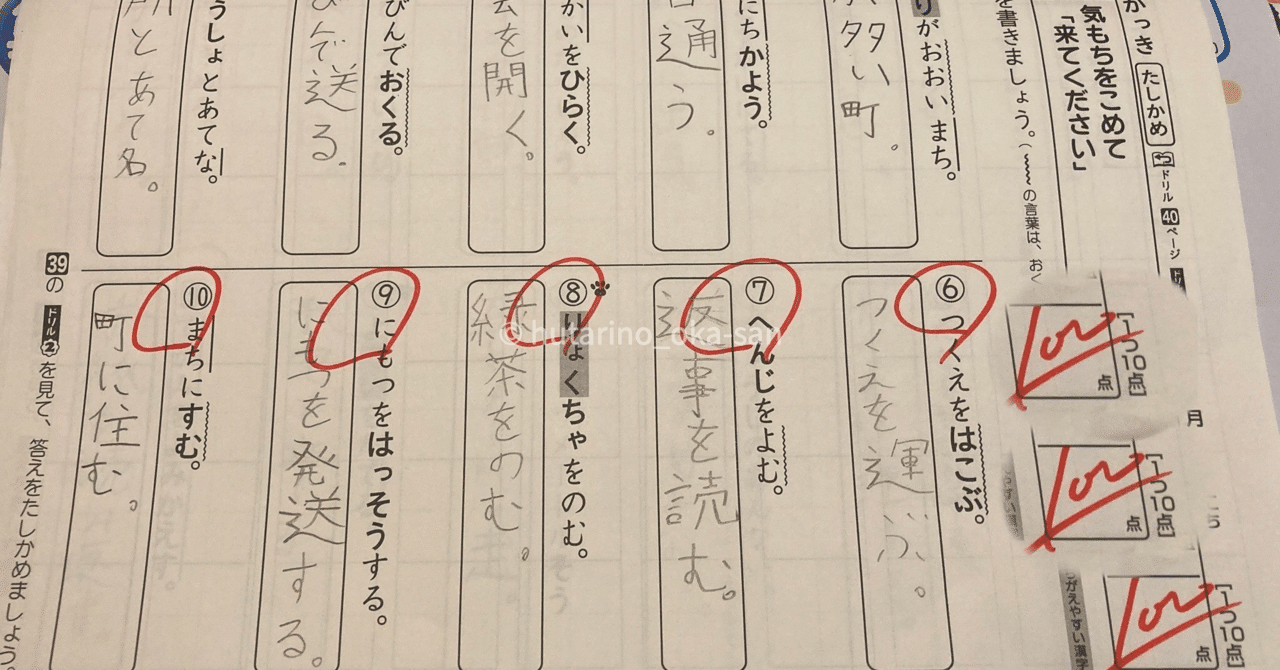 がっき
たしかめ
ドリル 40 ページ
気もちをこめて
「来てください」
を書きましょう。(〰〰の言葉は、おく
りがおおいまち。
多い町。
にちかよう。
通う。
かいをひらく。
を開く。
びんでおくる。
びんで送る。
うしょとあてな。
所とあて名。
月
[1つ10点]
100
点
[1つ10点]
100
点
[1つ10点]
100
点
⑥ つくえをはこぶ。
つくえを運ぶ。
⑦ へんじをよむ。
返事を読む。
⑧ りょくちゃをのむ。
緑茶をのむ。
⑨ にもつをはっそうする。
にもつを発送する。
⑩ まちにすむ。
町に住む。
39の ドリル② を見て、答えをたしかめましょう。
© hutarino_oka-san